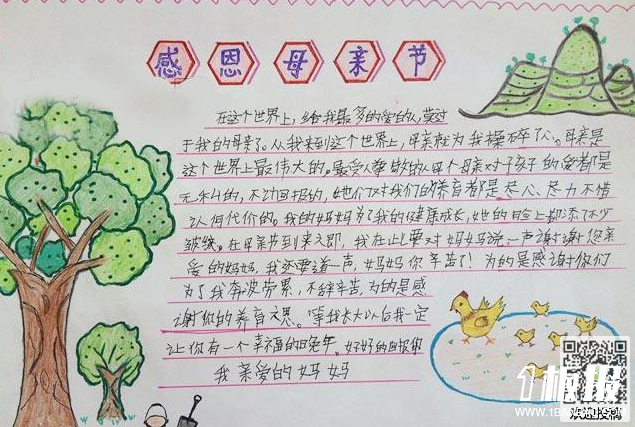 感恩母亲节
在这个世界上,给我最多的爱的人,莫过
于我的母亲了。从我来到这个世界上,母亲就为我操碎了心。母亲是
这个世界上最伟大的。最受人尊敬的人每个母亲对子孩子的爱都是
无私的,不过问报的,她们对我们的养育都是尽心、尽力不惜
认何代价的。我的妈妈为了我的健康成长,她的脸上都添了不少
皱纹。在母亲节到来之即,我在此要对妈妈说一声谢谢您亲
爱的妈妈,我还要道一声,妈妈你辛苦了!为的是感谢你们
为了我奔波劳累,不辞辛苦,为的是感
谢你的养育之恩。等我长大以后我一定
让你有一个幸福的晚年。好好的
我亲爱的妈妈
板报
WWW.1BANBAO.COM